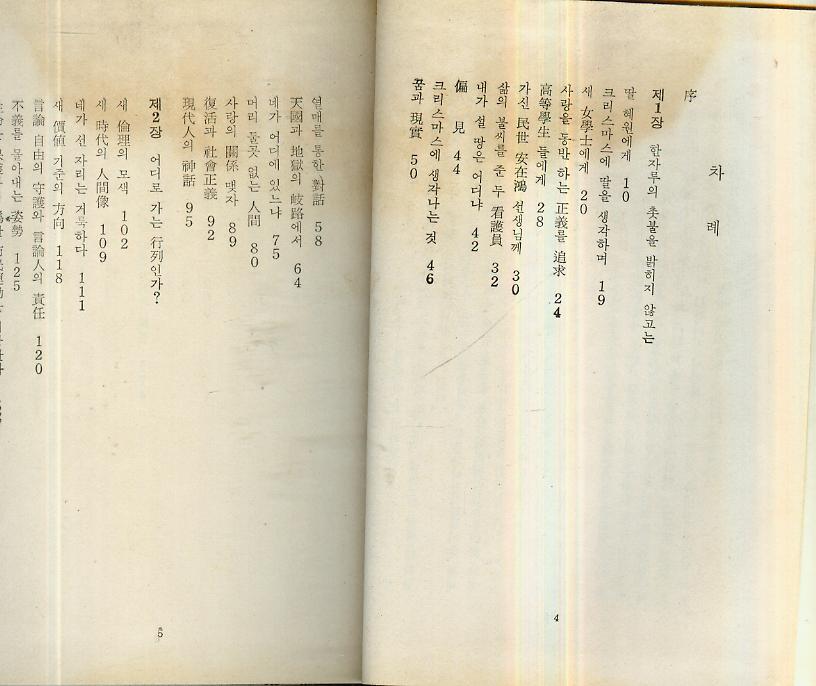 차 례
序
제1장 한자루의 촛불을 밝히지 않고는
딸 혜원에게 10
크리스마스에 딸을 생각하며 19
새 女學士에게 20
사랑을 동반 하는 正義를 追求 24
高等學生 들에게 28
가신 民世 安在鴻 선생님께 30
삶의 불씨를 준 두 看護員 32
내가 설 땅은 어디냐 42
偏 見 44
크리스마스에 생각나는 것 46
꿈과 現實 50
4
열매를 통한 對話 58
天國과 地獄의 岐路에서 64
네가 어디에 있느냐 75
머리 둘곳 없는 人間 80
사랑의 關係 맺자 89
復活과 社會正義 92
現代人의 神話 95
제2장 어디로 가는 行列인가?
새 倫理의 모색 102
새 時代의 人間像 109
네가 선 자리는 거룩하다 111
새 價値 기준의 方向 118
言論 自由의 守護와 言論人의 責任 120
不義를 몰아내는 姿勢 125
5